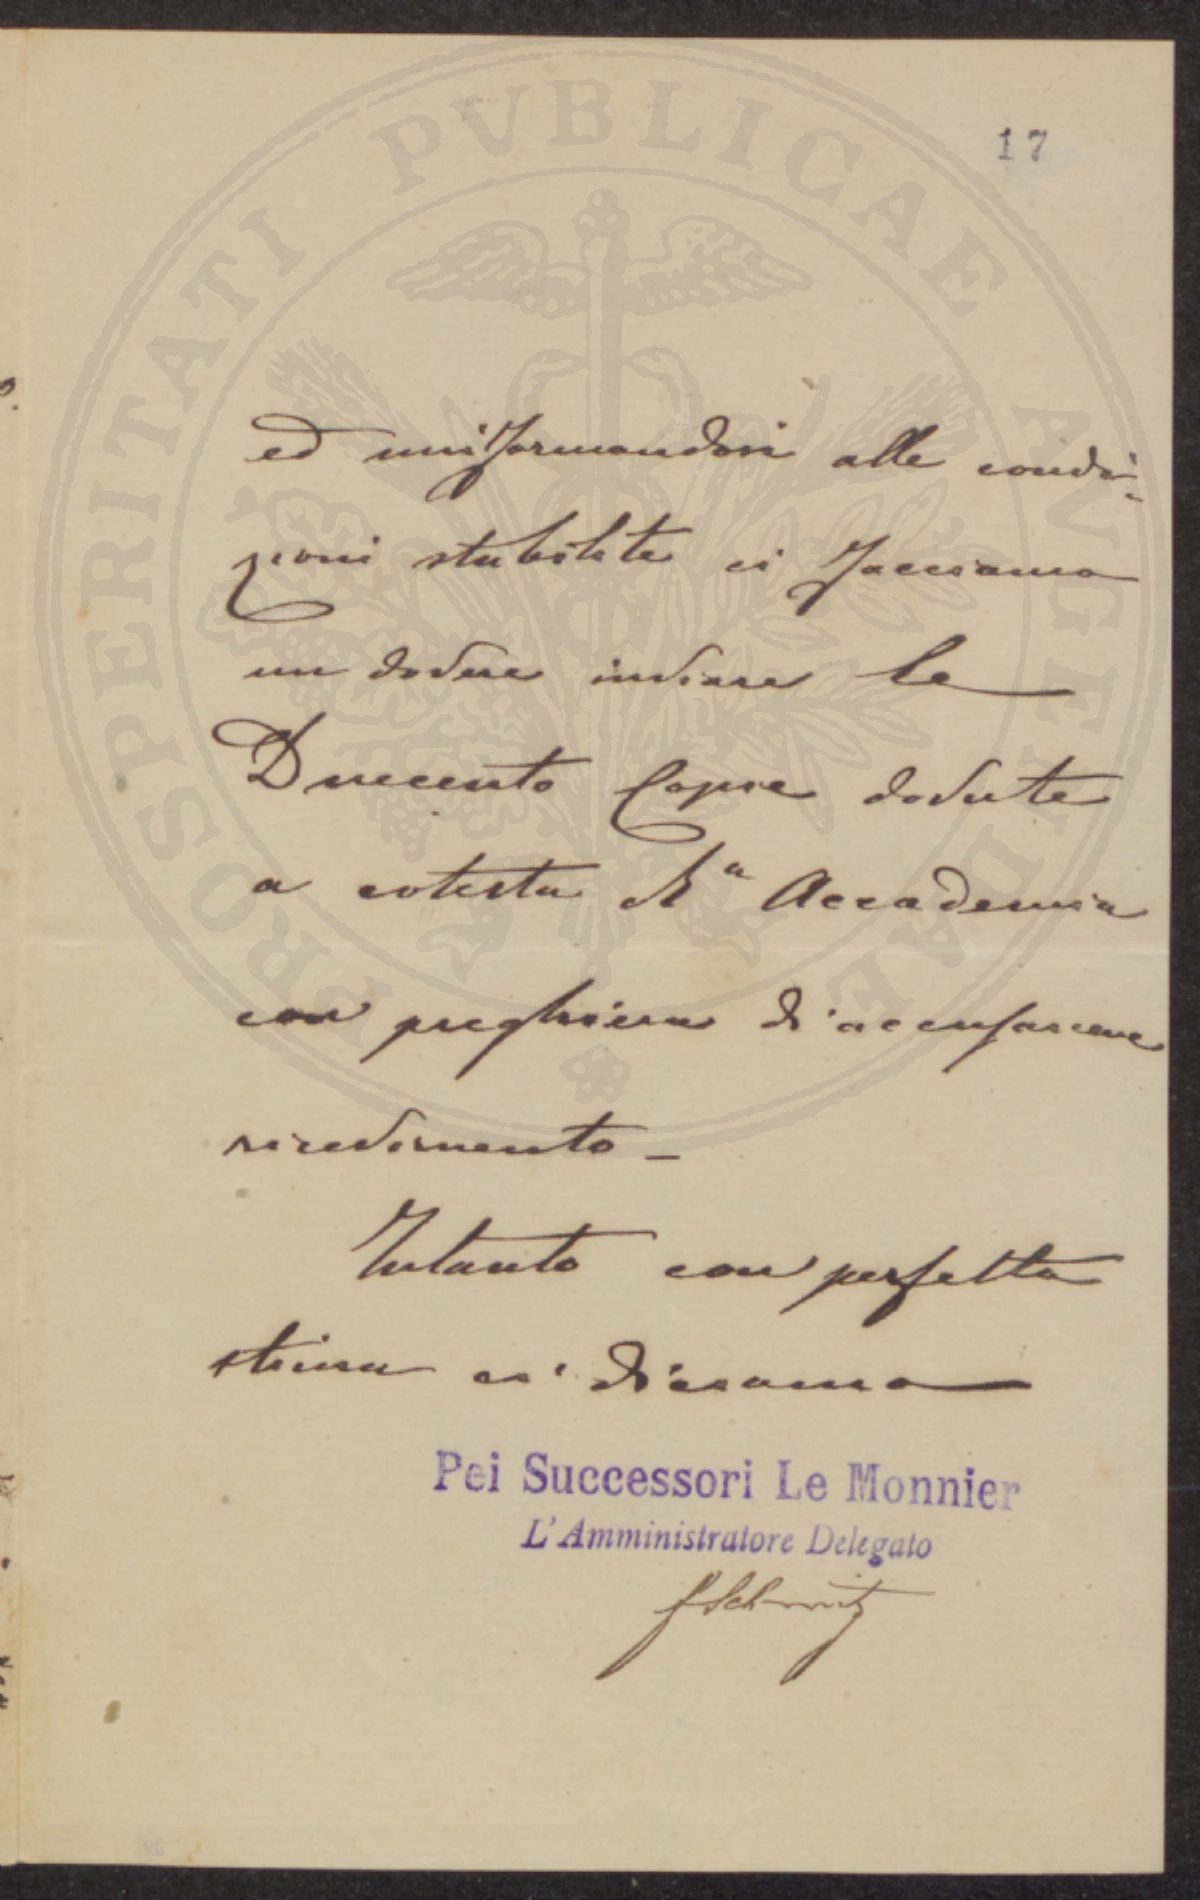 17
PROSPERITATI PVBLICAE AVGENDAE
ed uniformandosi alle condi-
zioni stabilite ci facciamo
un dovere inviare le
Duecento Copie dovute
a cotesta R.a Accademia
con preghiera di accusarcene
ricevimento _
Intanto con perfetta
stima ci diciamo
Pei Successori Le Monnier
L'Amministratore Delegato